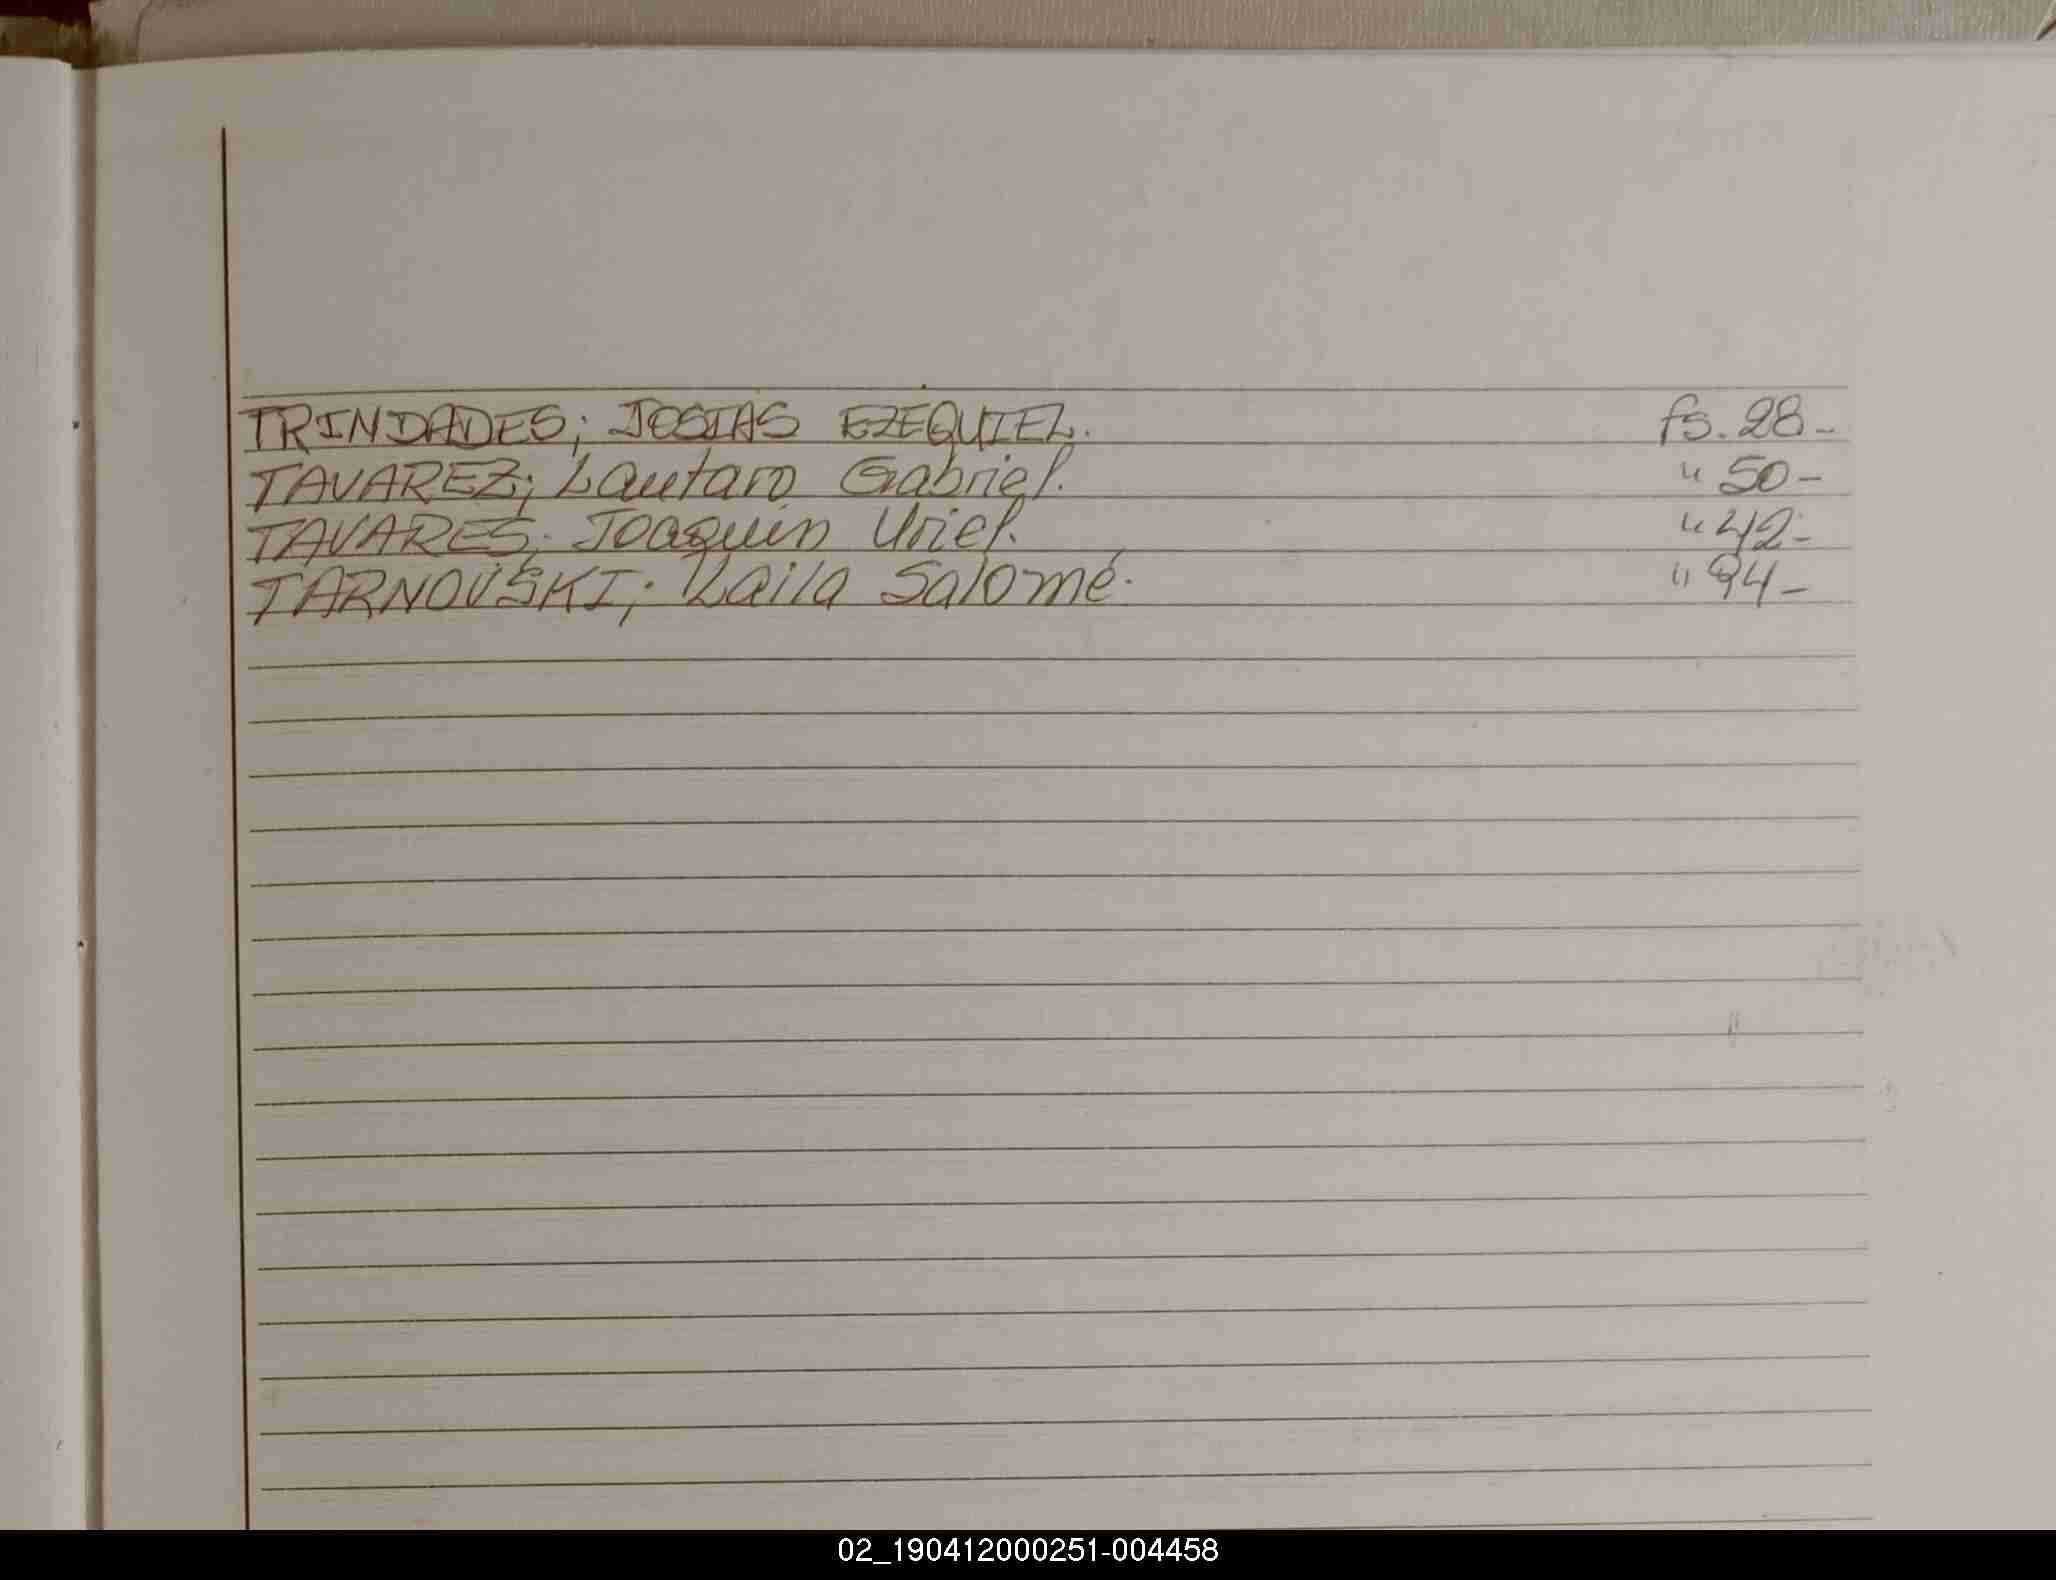 TRINDADES; JOSIAS EZEQUIEL. fs. 28-
TAVAREZ; Lautaro Gabriel. " 50-
TAVARES; Joaquín Uriel. " 42-
TARNOVSKI; Laila Salomé. " 94-
02_190412000251-004458